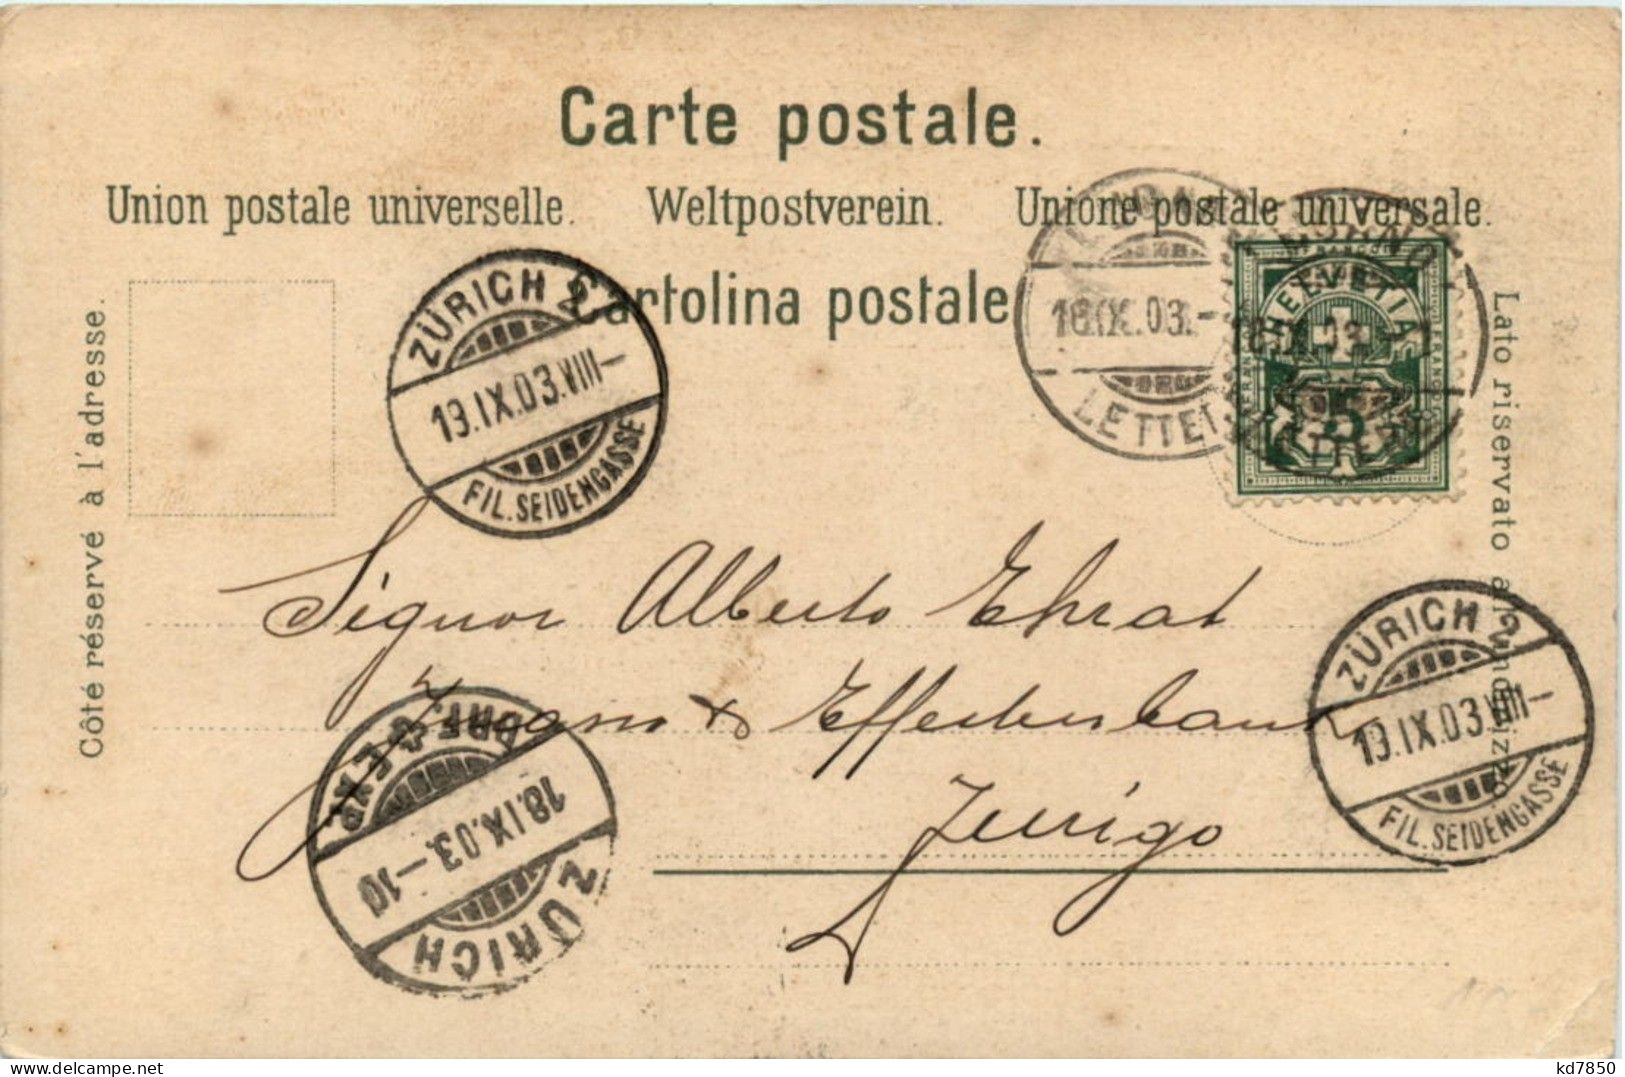 Carte postale.
Union postale universelle. Weltpostverein. Unione postale universale.
Cartolina postale
Côté réservé à l'adresse.
Lato riservato
ZÜRICH 2
19.IX.03.VIII–
FIL. SEIDENGASSE
18.IX.03.–
HELVETIA
FRANCO
5
Signor Alberto Ehrat
& Effectenbank
Zurigo
ZÜRICH 2
19.IX.03.VIII–
FIL. SEIDENGASSE
BRF. & EXP.
18.IX.03.–10
ZÜRICH
kd7850